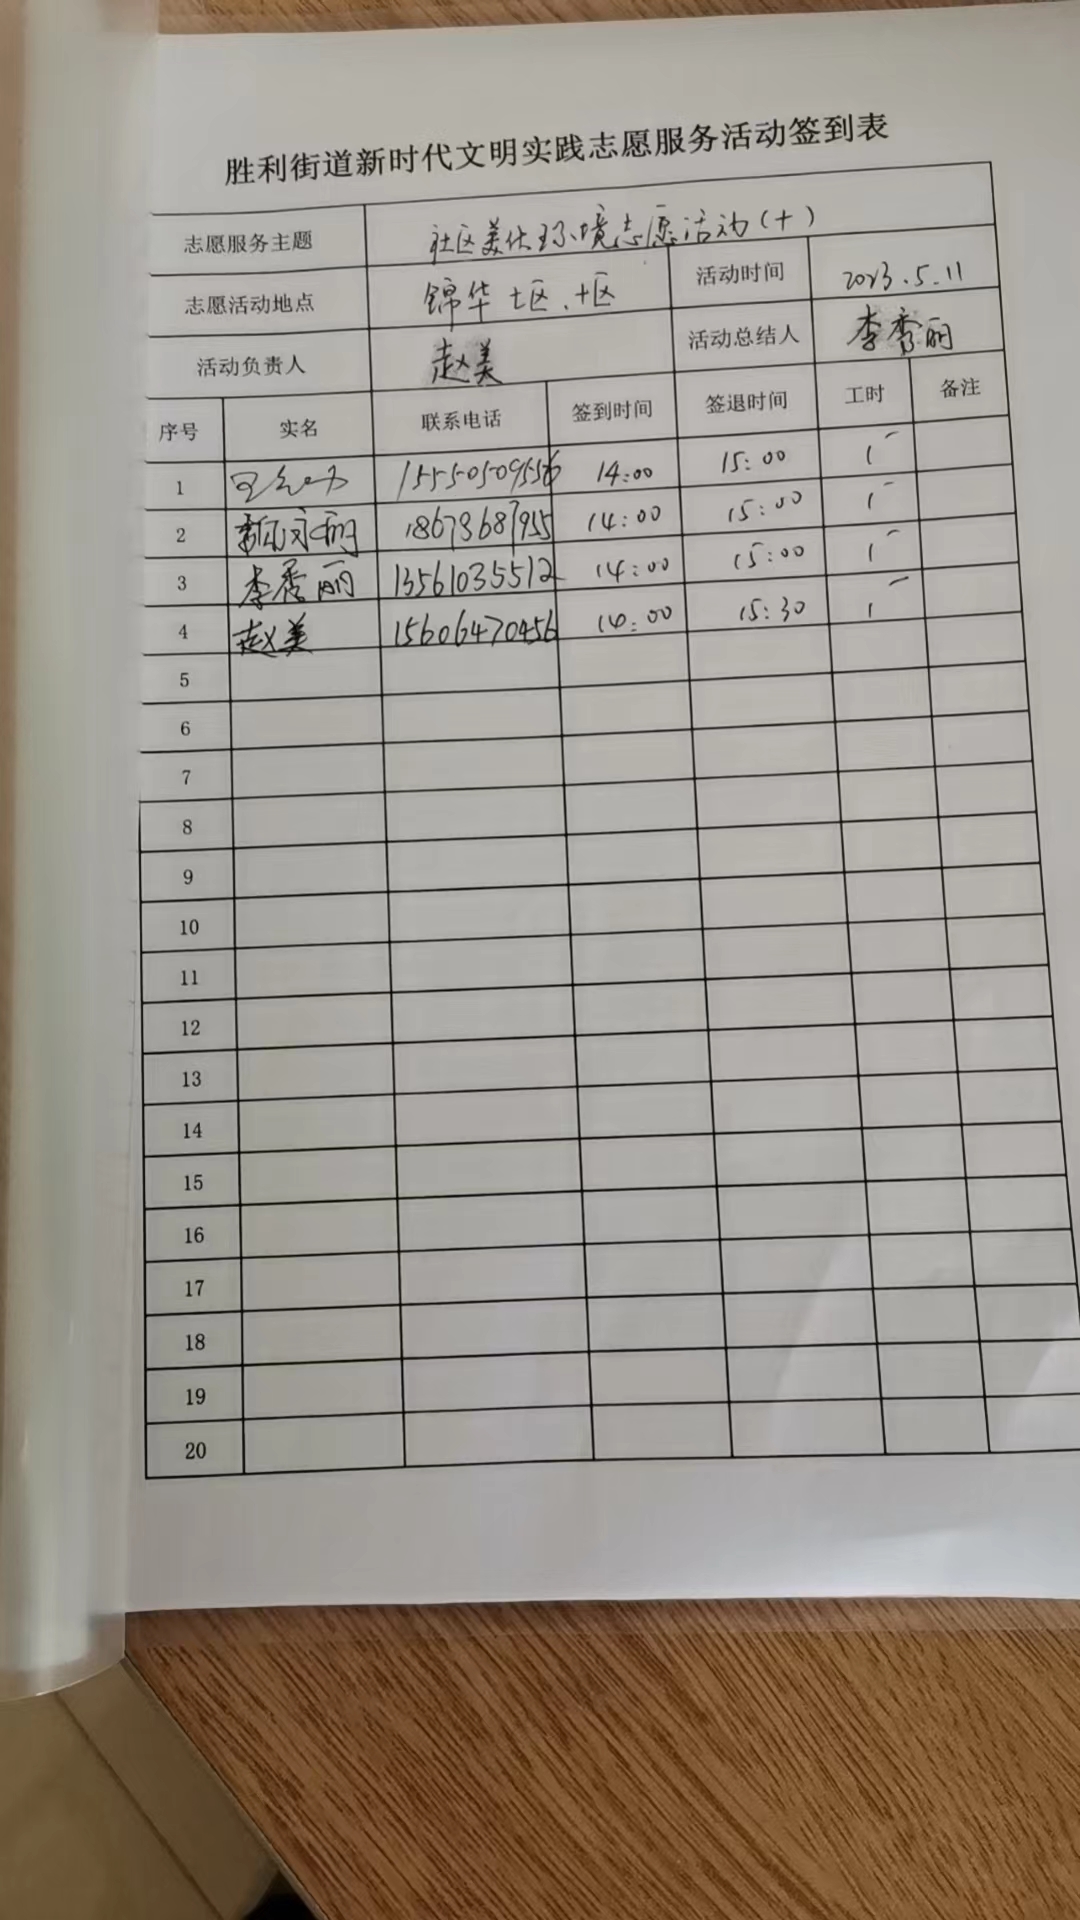 胜利街道新时代文明实践志愿服务活动签到表
志愿服务主题 社区美化环境志愿活动(十)
志愿活动地点 锦华七区、十区 活动时间 2023.5.11
活动负责人 赵美 活动总结人 李秀丽
序号 实名 联系电话 签到时间 签退时间 工时 备注
1 15550509556 14:00 15:00 1
2 丽 18678687955 14:00 15:00 1
3 李秀丽 13561035512 14:00 15:00 1
4 赵美 15606470456 14:00 15:30 1
5
6
7
8
9
10
11
12
13
14
15
16
17
18
19
20